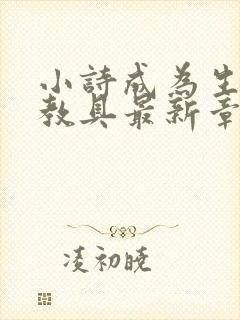 小詩成為生
教具最新章
凌初曉